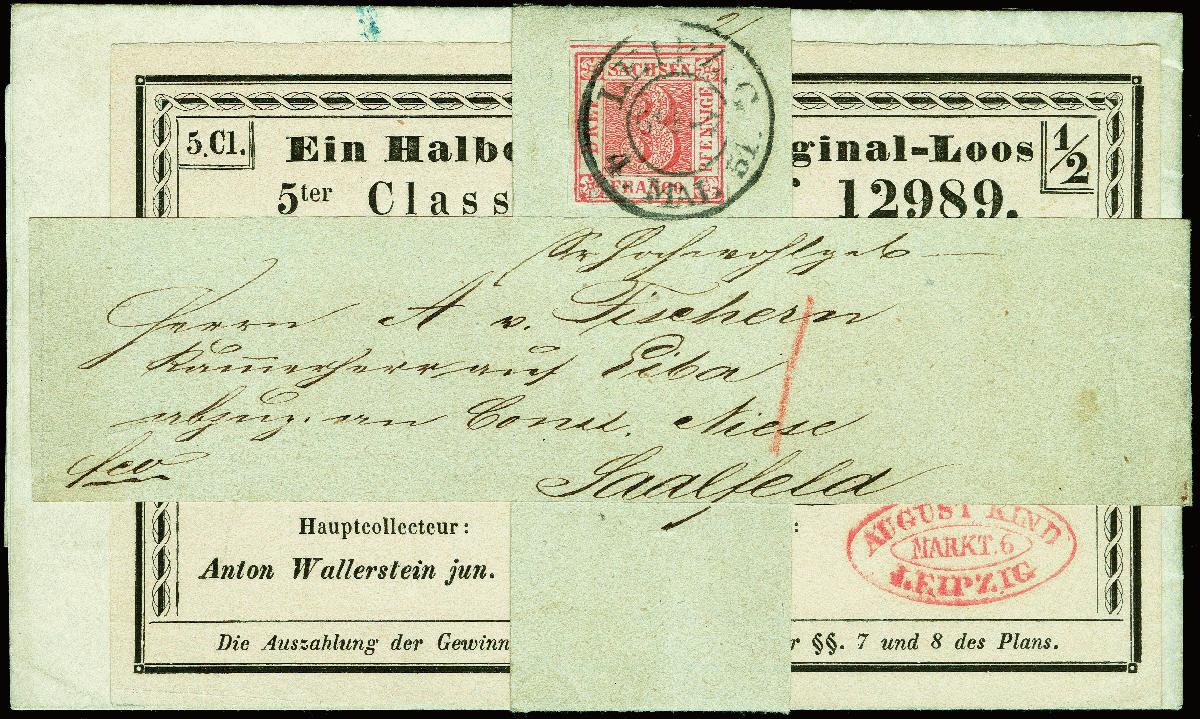 21
SACHSEN
DREI
3
PFENNIGE
FRANCO
LEIPZIG
MAI 51.
5.Cl.
Ein Halbe
ginal-Loos
1/2
5ter Class
12989.
Sr. Hochwohlgeb
Herrn A v. Fischern
Kammerherr auf Eiba
abzug. an Const. Niese
fco
Saalfeld
Hauptcollecteur:
:
Anton Wallerstein jun.
AUGUST KIND
MARKT. 6
LEIPZIG
Die Auszahlung der Gewinn
r §§. 7 und 8 des Plans.